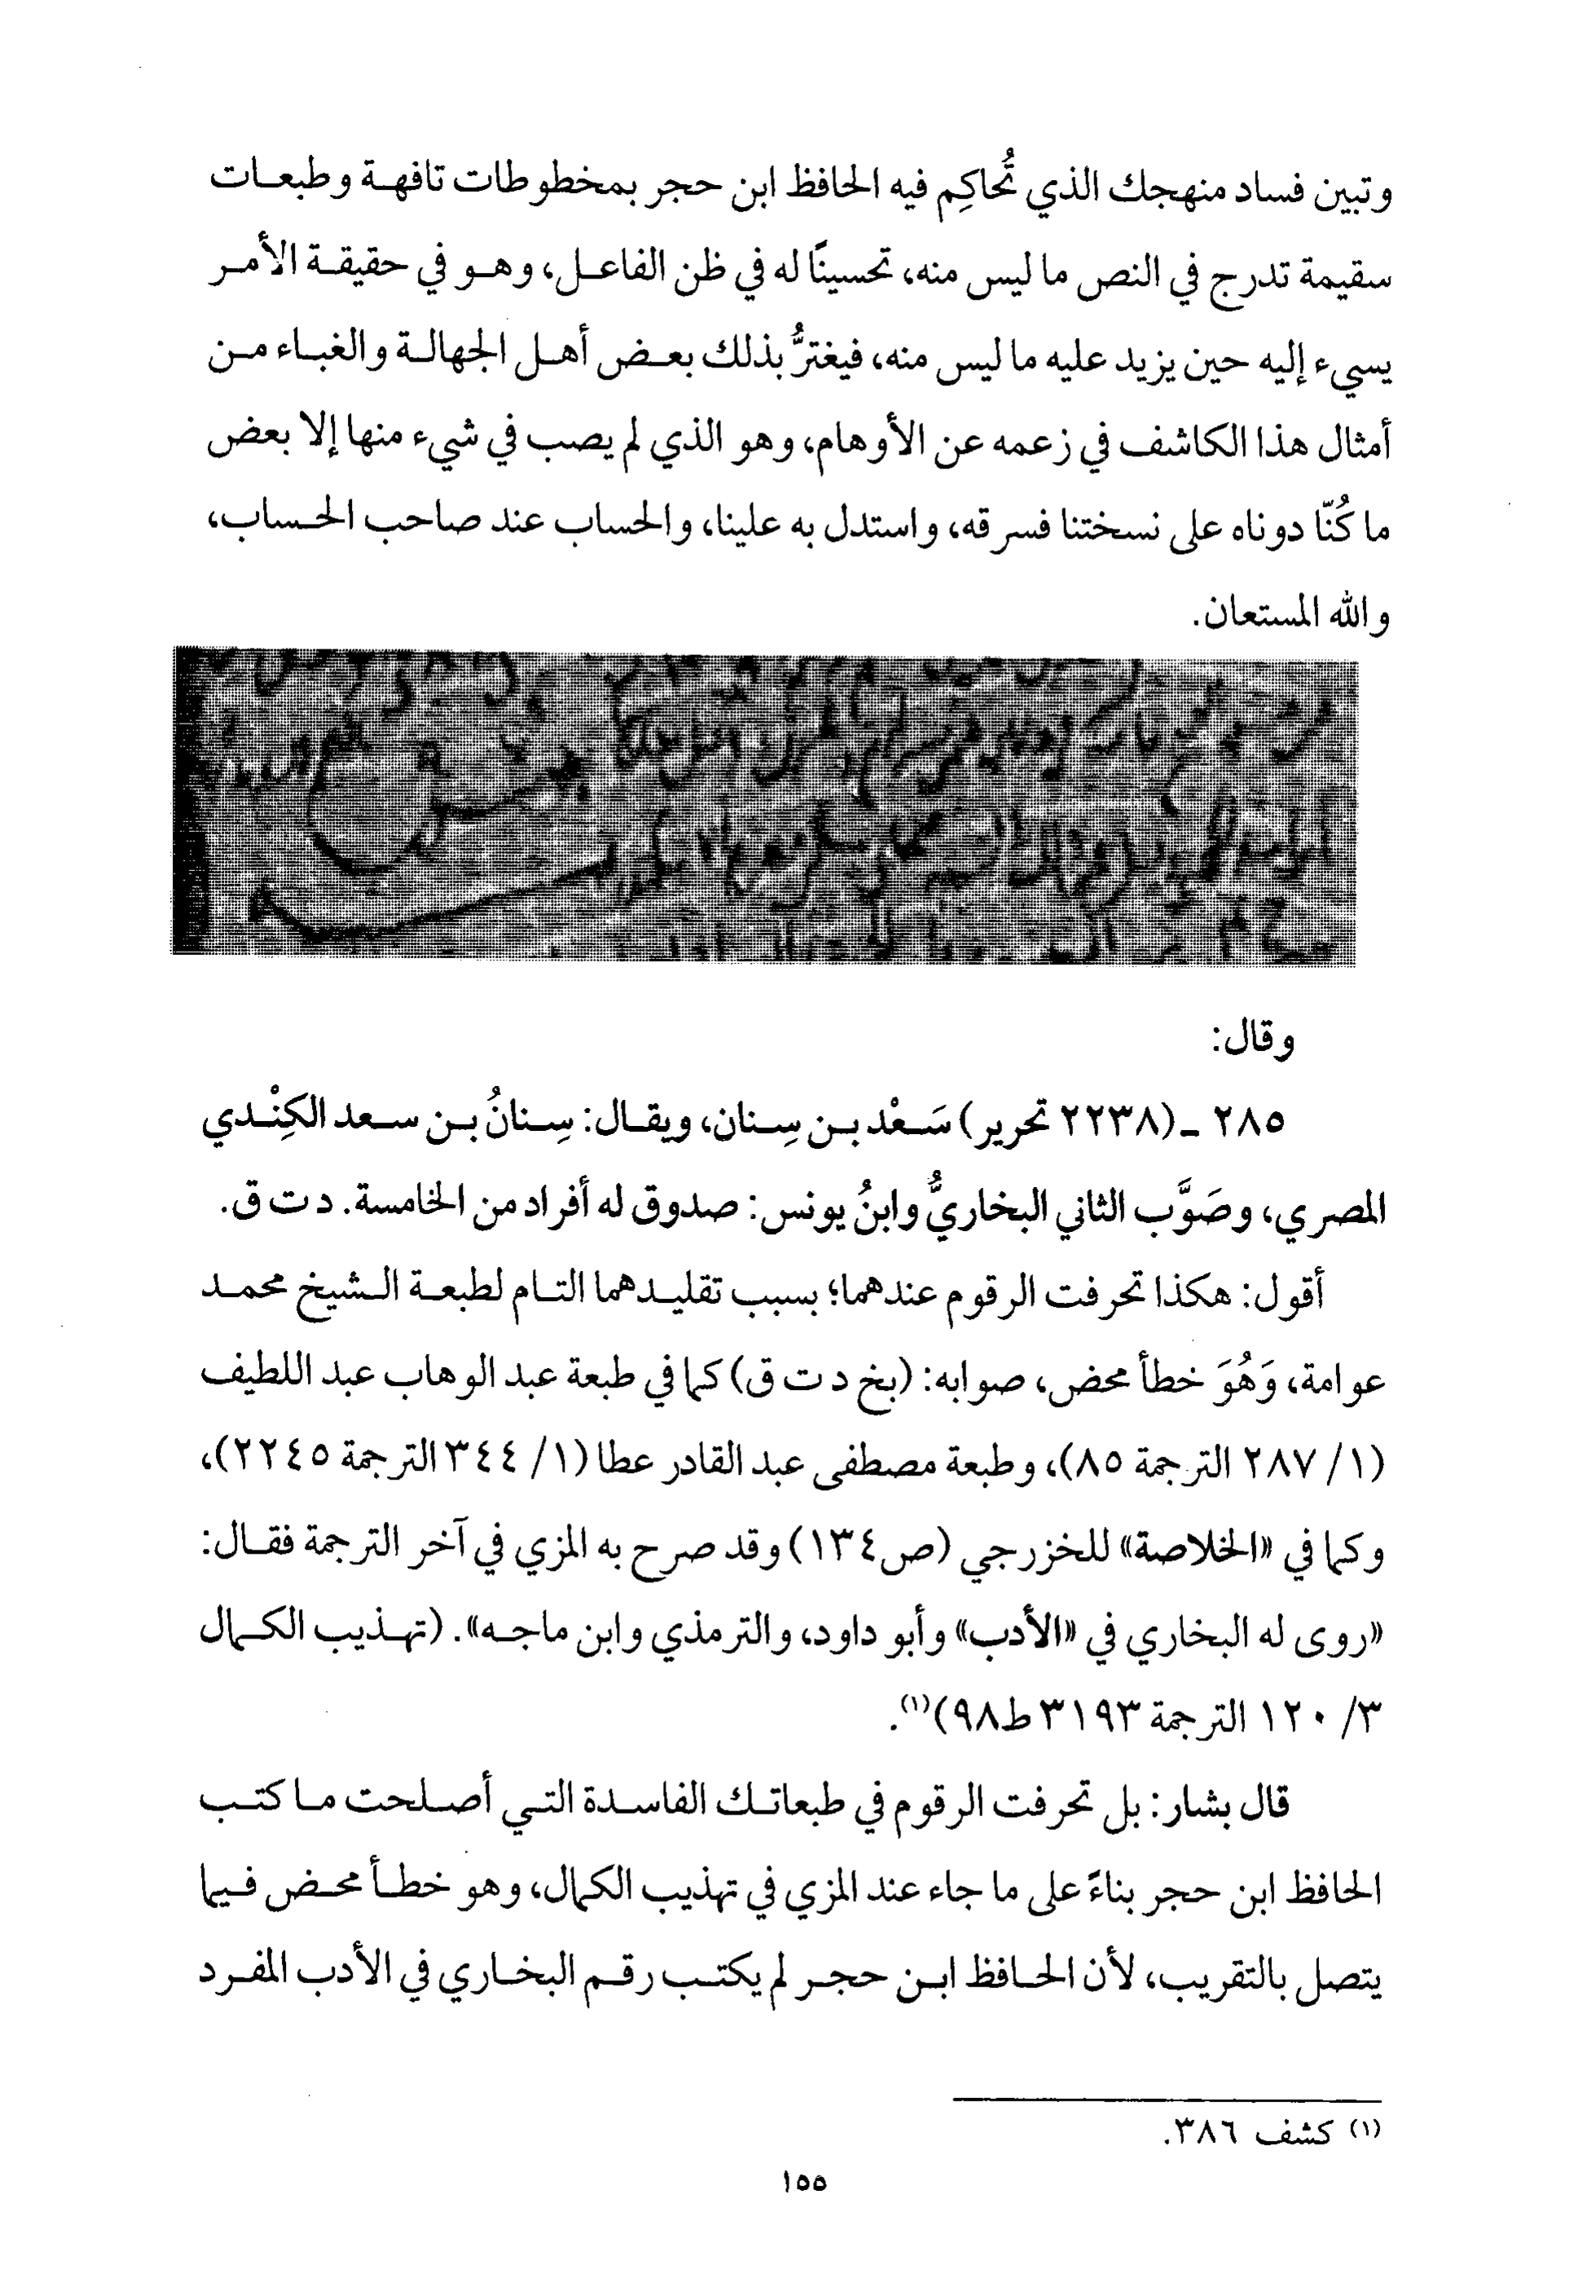 وتبين فساد منهجك الذي تُحاكِم فيه الحافظ ابن حجر بمخطوطات تافهة وطبعات
سقيمة تدرج في النص ما ليس منه، تحسينًا له في ظن الفاعل، وهو في حقيقة الأمر
يسيء إليه حين يزيد عليه ما ليس منه، فيغترُّ بذلك بعض أهل الجهالة والغباء من
أمثال هذا الكاشف في زعمه عن الأوهام، وهو الذي لم يصب في شيء منها إلا بعض
ما كُنّا دوناه على نسختنا فسرقه، واستدل به علينا، والحساب عند صاحب الحساب،
والله المستعان.
وقال:
٢٨٥ ـ (٢٢٣٨ تحرير) سَعْد بن سِنان، ويقال: سِنانُ بن سعد الكِنْدي
المصري، وصَوَّب الثاني البخاريُّ وابنُ يونس: صدوق له أفراد من الخامسة. د ت ق.
أقول: هكذا تحرفت الرقوم عندهما؛ بسبب تقليدهما التام لطبعة الشيخ محمد
عوامة، وَهُوَ خطأ محض، صوابه: (بخ د ت ق) كما في طبعة عبد الوهاب عبد اللطيف
(١/ ٢٨٧ الترجمة ٨٥)، وطبعة مصطفى عبد القادر عطا (١/ ٣٤٤ الترجمة ٢٢٤٥)،
وكما في «الخلاصة» للخزرجي (ص١٣٤) وقد صرح به المزي في آخر الترجمة فقال:
«روى له البخاري في «الأدب» وأبو داود، والترمذي وابن ماجه». (تهذيب الكمال
٣/ ١٢٠ الترجمة ٣١٩٣ ط٩٨)(١).
قال بشار: بل تحرفت الرقوم في طبعاتك الفاسدة التي أصلحت ما كتب
الحافظ ابن حجر بناءً على ما جاء عند المزي في تهذيب الكمال، وهو خطأ محض فيما
يتصل بالتقريب، لأن الحافظ ابن حجر لم يكتب رقم البخاري في الأدب المفرد
(١) كشف ٣٨٦.
١٥٥